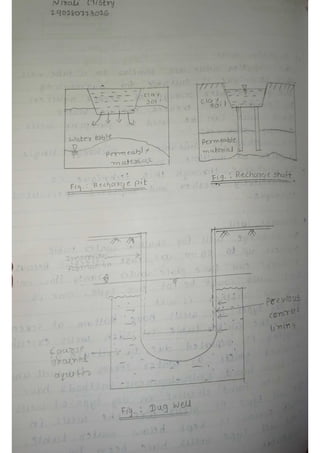 Nirali Mistry
190280713016
Clay
soil
Water table
Permeable
material
Fig. : Recharge pit
Clay
soil
Permeable
material
Fig. : Recharge shaft
Pervious
concrete
lining
Coarse
grained
Fig. : Dug well